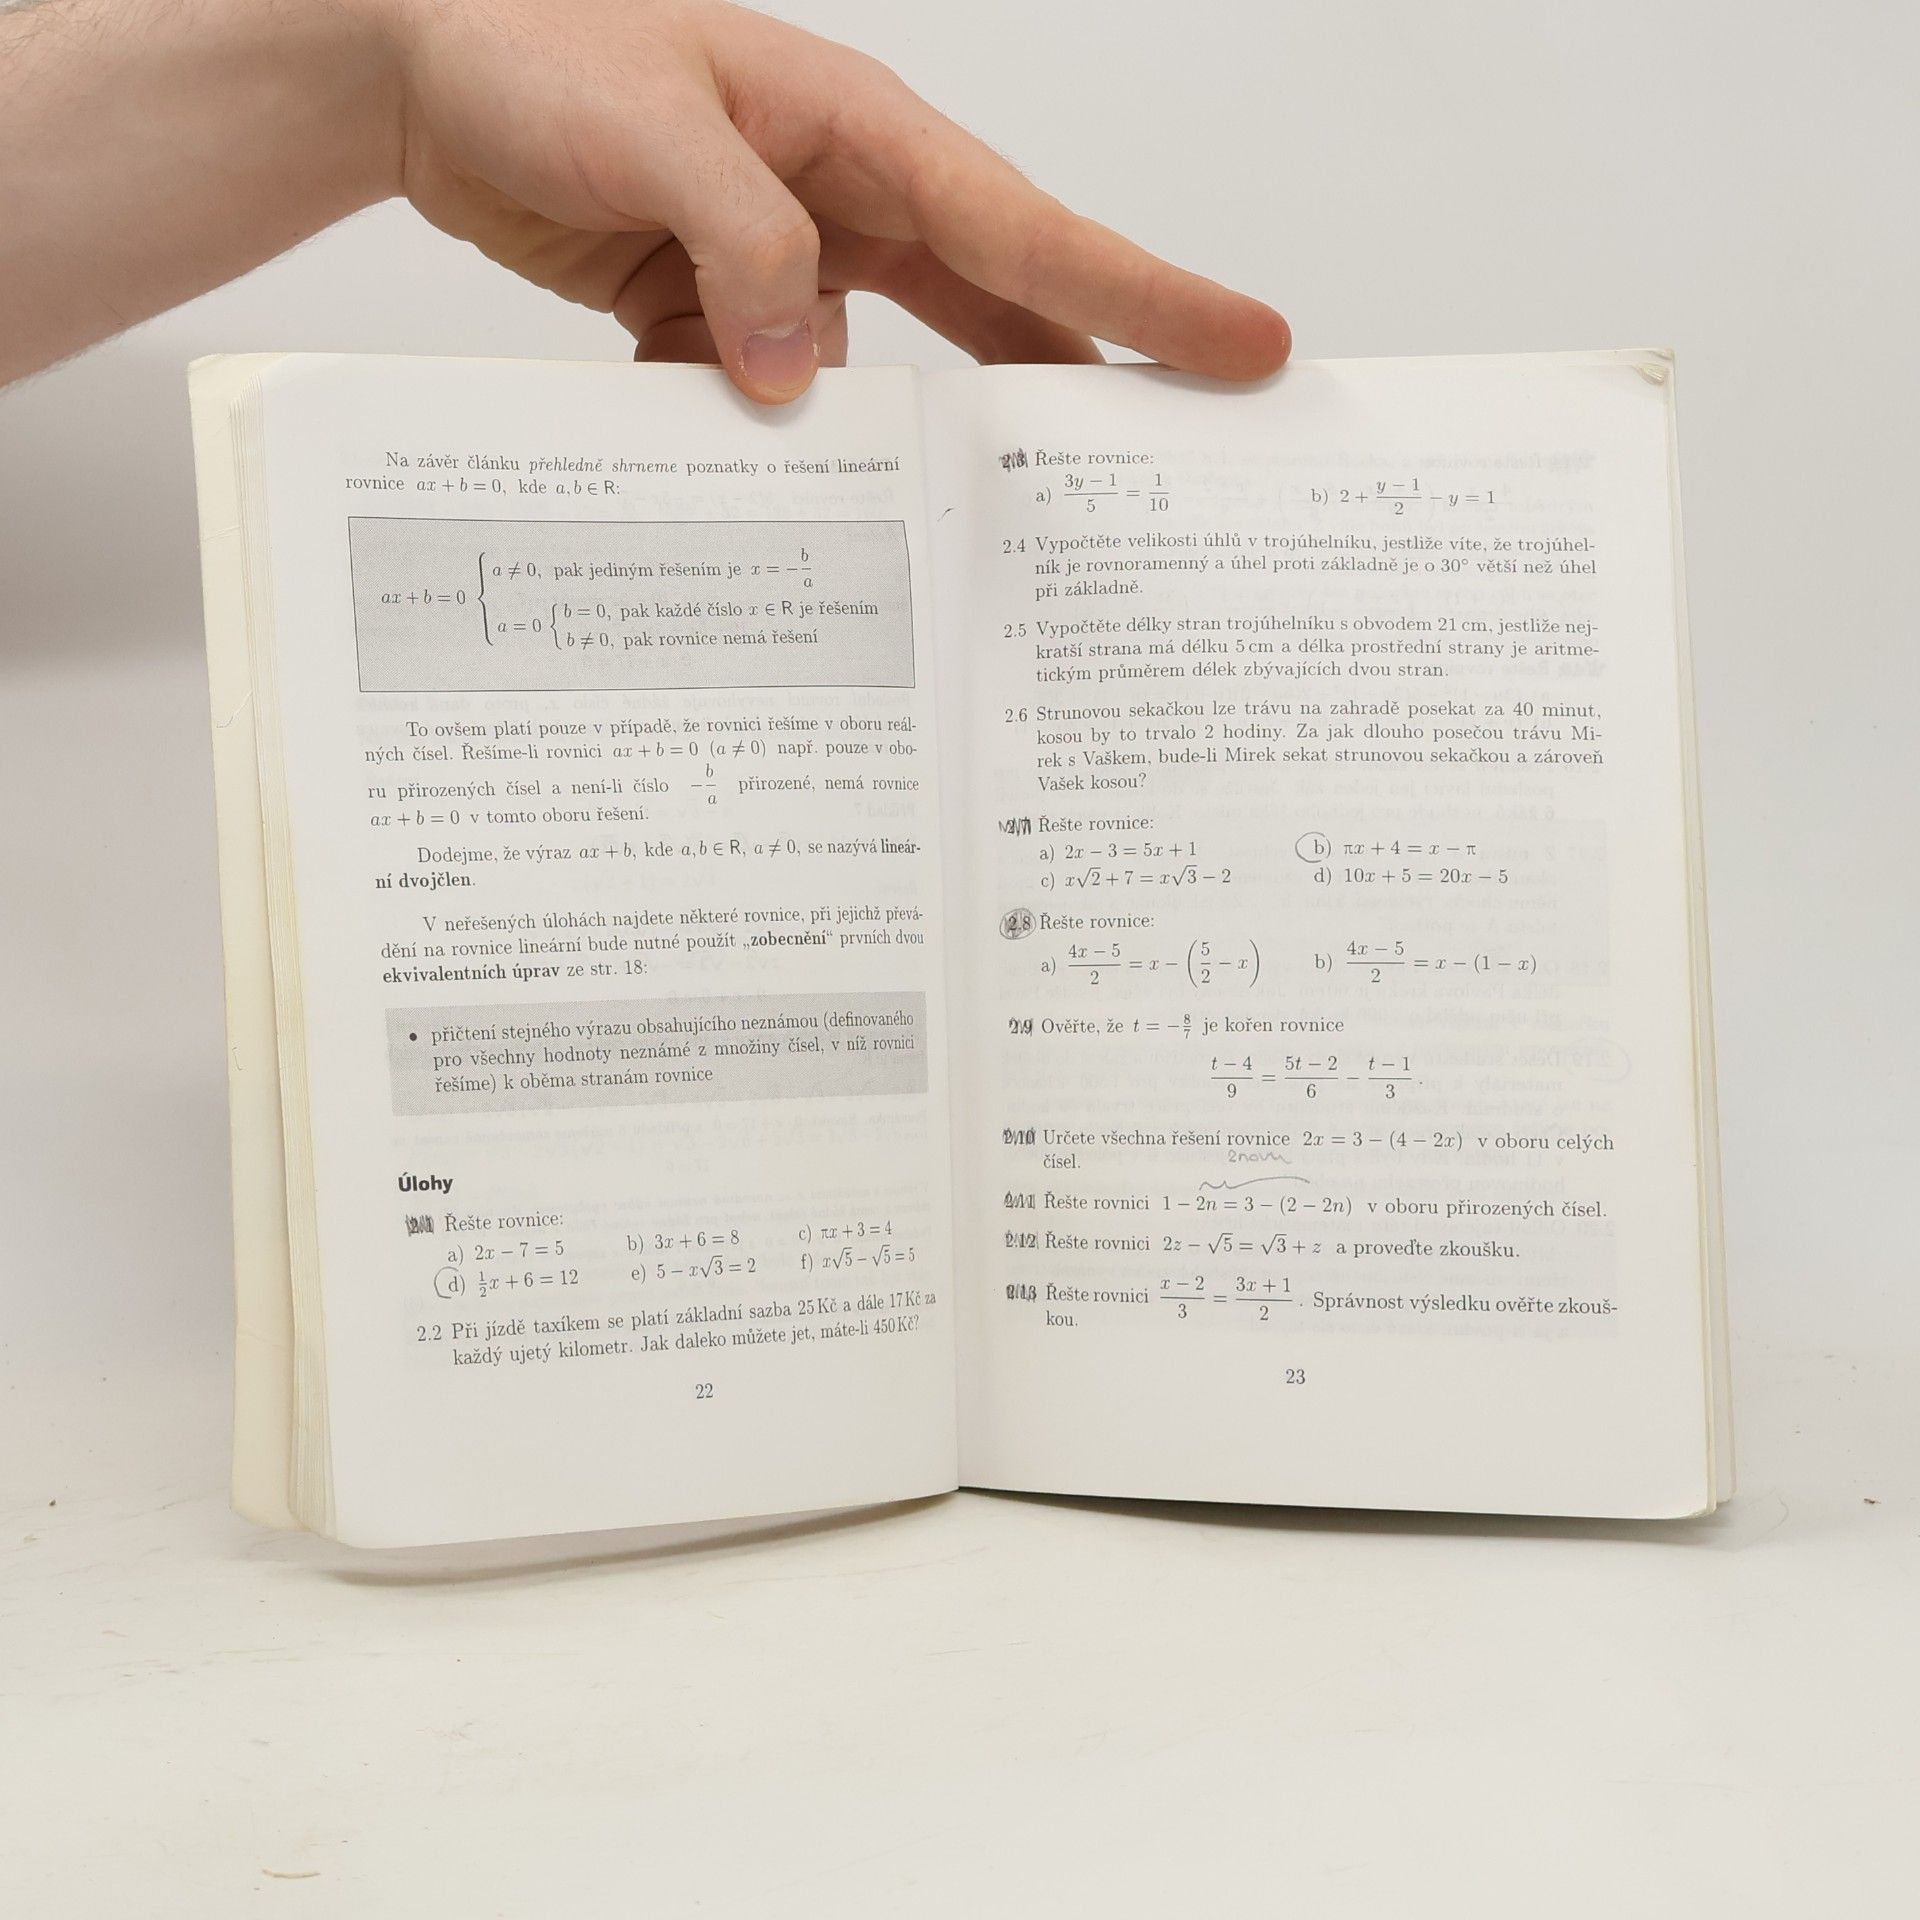 Na závěr článku přehledně shrneme poznatky o řešení lineární
rovnice ax + b = 0, kde a, b ∈ R:
ax + b = 0 { a ≠ 0, pak jediným řešením je x = −b/a
a = 0 { b = 0, pak každé číslo x ∈ R je řešením
b ≠ 0, pak rovnice nemá řešení
To ovšem platí pouze v případě, že rovnici řešíme v oboru reál-
ných čísel. Řešíme-li rovnici ax + b = 0 (a ≠ 0) např. pouze v obo-
ru přirozených čísel a není-li číslo −b/a přirozené, nemá rovnice
ax + b = 0 v tomto oboru řešení.
Dodejme, že výraz ax + b, kde a, b ∈ R, a ≠ 0, se nazývá lineár-
ní dvojčlen.
V neřešených úlohách najdete některé rovnice, při jejichž převá-
dění na rovnice lineární bude nutné použít „zobecnění“ prvních dvou
ekvivalentních úprav ze str. 18:
• přičtení stejného výrazu obsahujícího neznámou (definovaného
pro všechny hodnoty neznámé z množiny čísel, v níž rovnici
řešíme) k oběma stranám rovnice
Úlohy
2.1 Řešte rovnice:
a) 2x − 7 = 5 b) 3x + 6 = 8 c) πx + 3 = 4
d) ½x + 6 = 12 e) 5 − x√3 = 2 f) x√5 − √5 = 5
2.2 Při jízdě taxíkem se platí základní sazba 25 Kč a dále 17 Kč za
každý ujetý kilometr. Jak daleko můžete jet, máte-li 450 Kč?
22
2.3 Řešte rovnice:
a) (3y − 1)/5 = 1/10 b) 2 + (y − 1)/2 − y = 1
2.4 Vypočtěte velikosti úhlů v trojúhelníku, jestliže víte, že trojúhel-
ník je rovnoramenný a úhel proti základně je o 30° větší než úhel
při základně.
2.5 Vypočtěte délky stran trojúhelníku s obvodem 21 cm, jestliže nej-
kratší strana má délku 5 cm a délka prostřední strany je aritme-
tickým průměrem délek zbývajících dvou stran.
2.6 Strunovou sekačkou lze trávu na zahradě posekat za 40 minut,
kosou by to trvalo 2 hodiny. Za jak dlouho posečou trávu Mi-
rek s Vaškem, bude-li Mirek sekat strunovou sekačkou a zároveň
Vašek kosou?
2.7 Řešte rovnice:
a) 2x − 3 = 5x + 1 b) πx + 4 = x − π
c) x√2 + 7 = x√3 − 2 d) 10x + 5 = 20x − 5
2.8 Řešte rovnice:
a) (4x − 5)/2 = x − (5/2 − x) b) (4x − 5)/2 = x − (1 − x)
2.9 Ověřte, že t = −8/7 je kořen rovnice
(t − 4)/9 = (5t − 2)/6 − (t − 1)/3.
2.10 Určete všechna řešení rovnice 2x = 3 − (4 − 2x) v oboru celých
čísel.
2.11 Řešte rovnici 1 − 2n = 3 − (2 − 2n) v oboru přirozených čísel.
2.12 Řešte rovnici 2z − √5 = √3 + z a proveďte zkoušku.
2.13 Řešte rovnici (x − 2)/3 = (3x + 1)/2. Správnost výsledku ověřte zkouš-
kou.
23